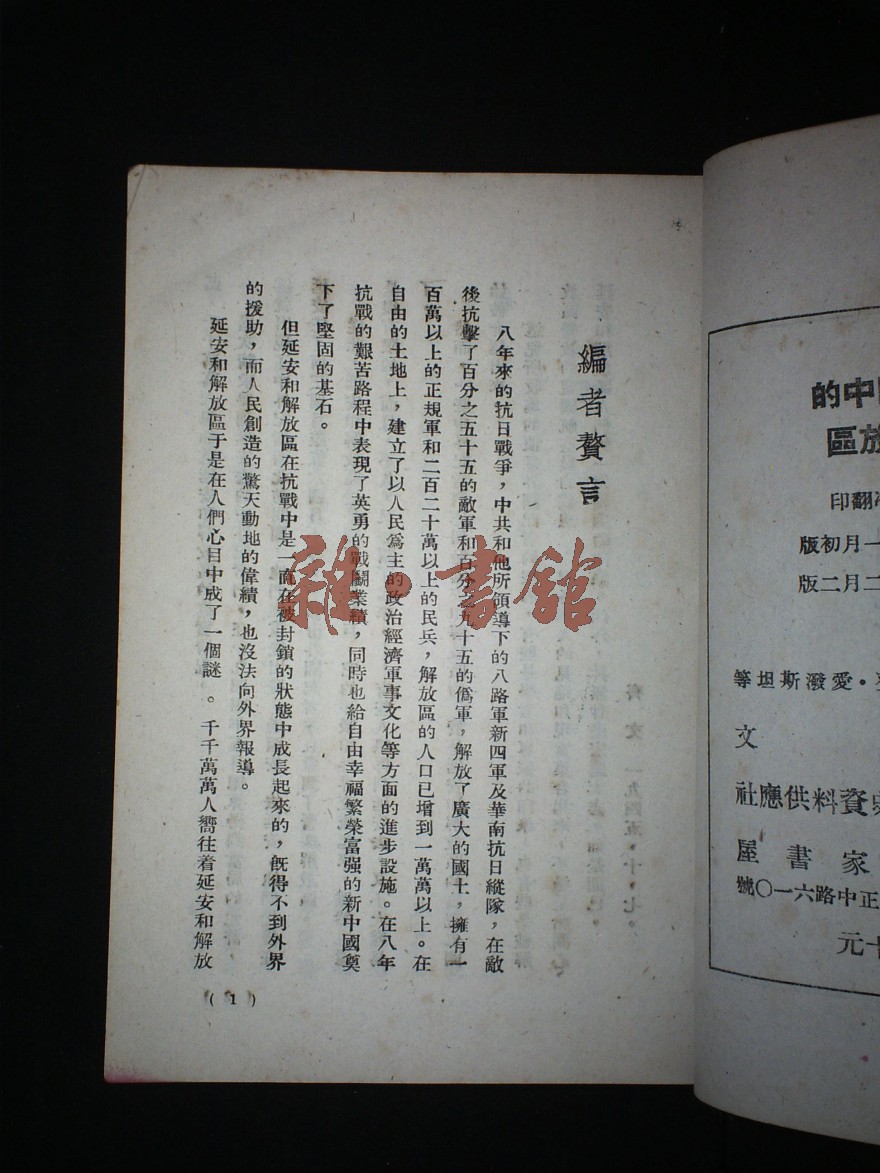 編者贅言
八年來的抗日戰爭，中共和他所領導下的八路軍新四軍及華南抗日縱隊，在敵
後抗擊了百分之五十五的敵軍和百分之九十五的僞軍，解放了廣大的國土，擁有一
百萬以上的正規軍和二百二十萬以上的民兵，解放區的人口已增到一萬萬以上。在
自由的土地上，建立了以人民爲主的政治經濟軍事文化等方面的進步設施。在八年
抗戰的艱苦路程中表現了英勇的戰鬭業績，同時也給自由幸福繁榮富强的新中國奠
下了堅固的基石。
但延安和解放區在抗戰中是一面在被封鎖的狀態中成長起來的，旣得不到外界
的援助，而人民創造的驚天動地的偉績，也沒法向外界報導。
延安和解放區于是在人們心目中成了一個謎。千千萬萬人嚮往着延安和解放
( 1 )
雜·書館
中的
放區
翻印
一月初版
二月二版
·愛潑斯坦等
文
資料供應社
家書屋
正中路六一〇號
十元